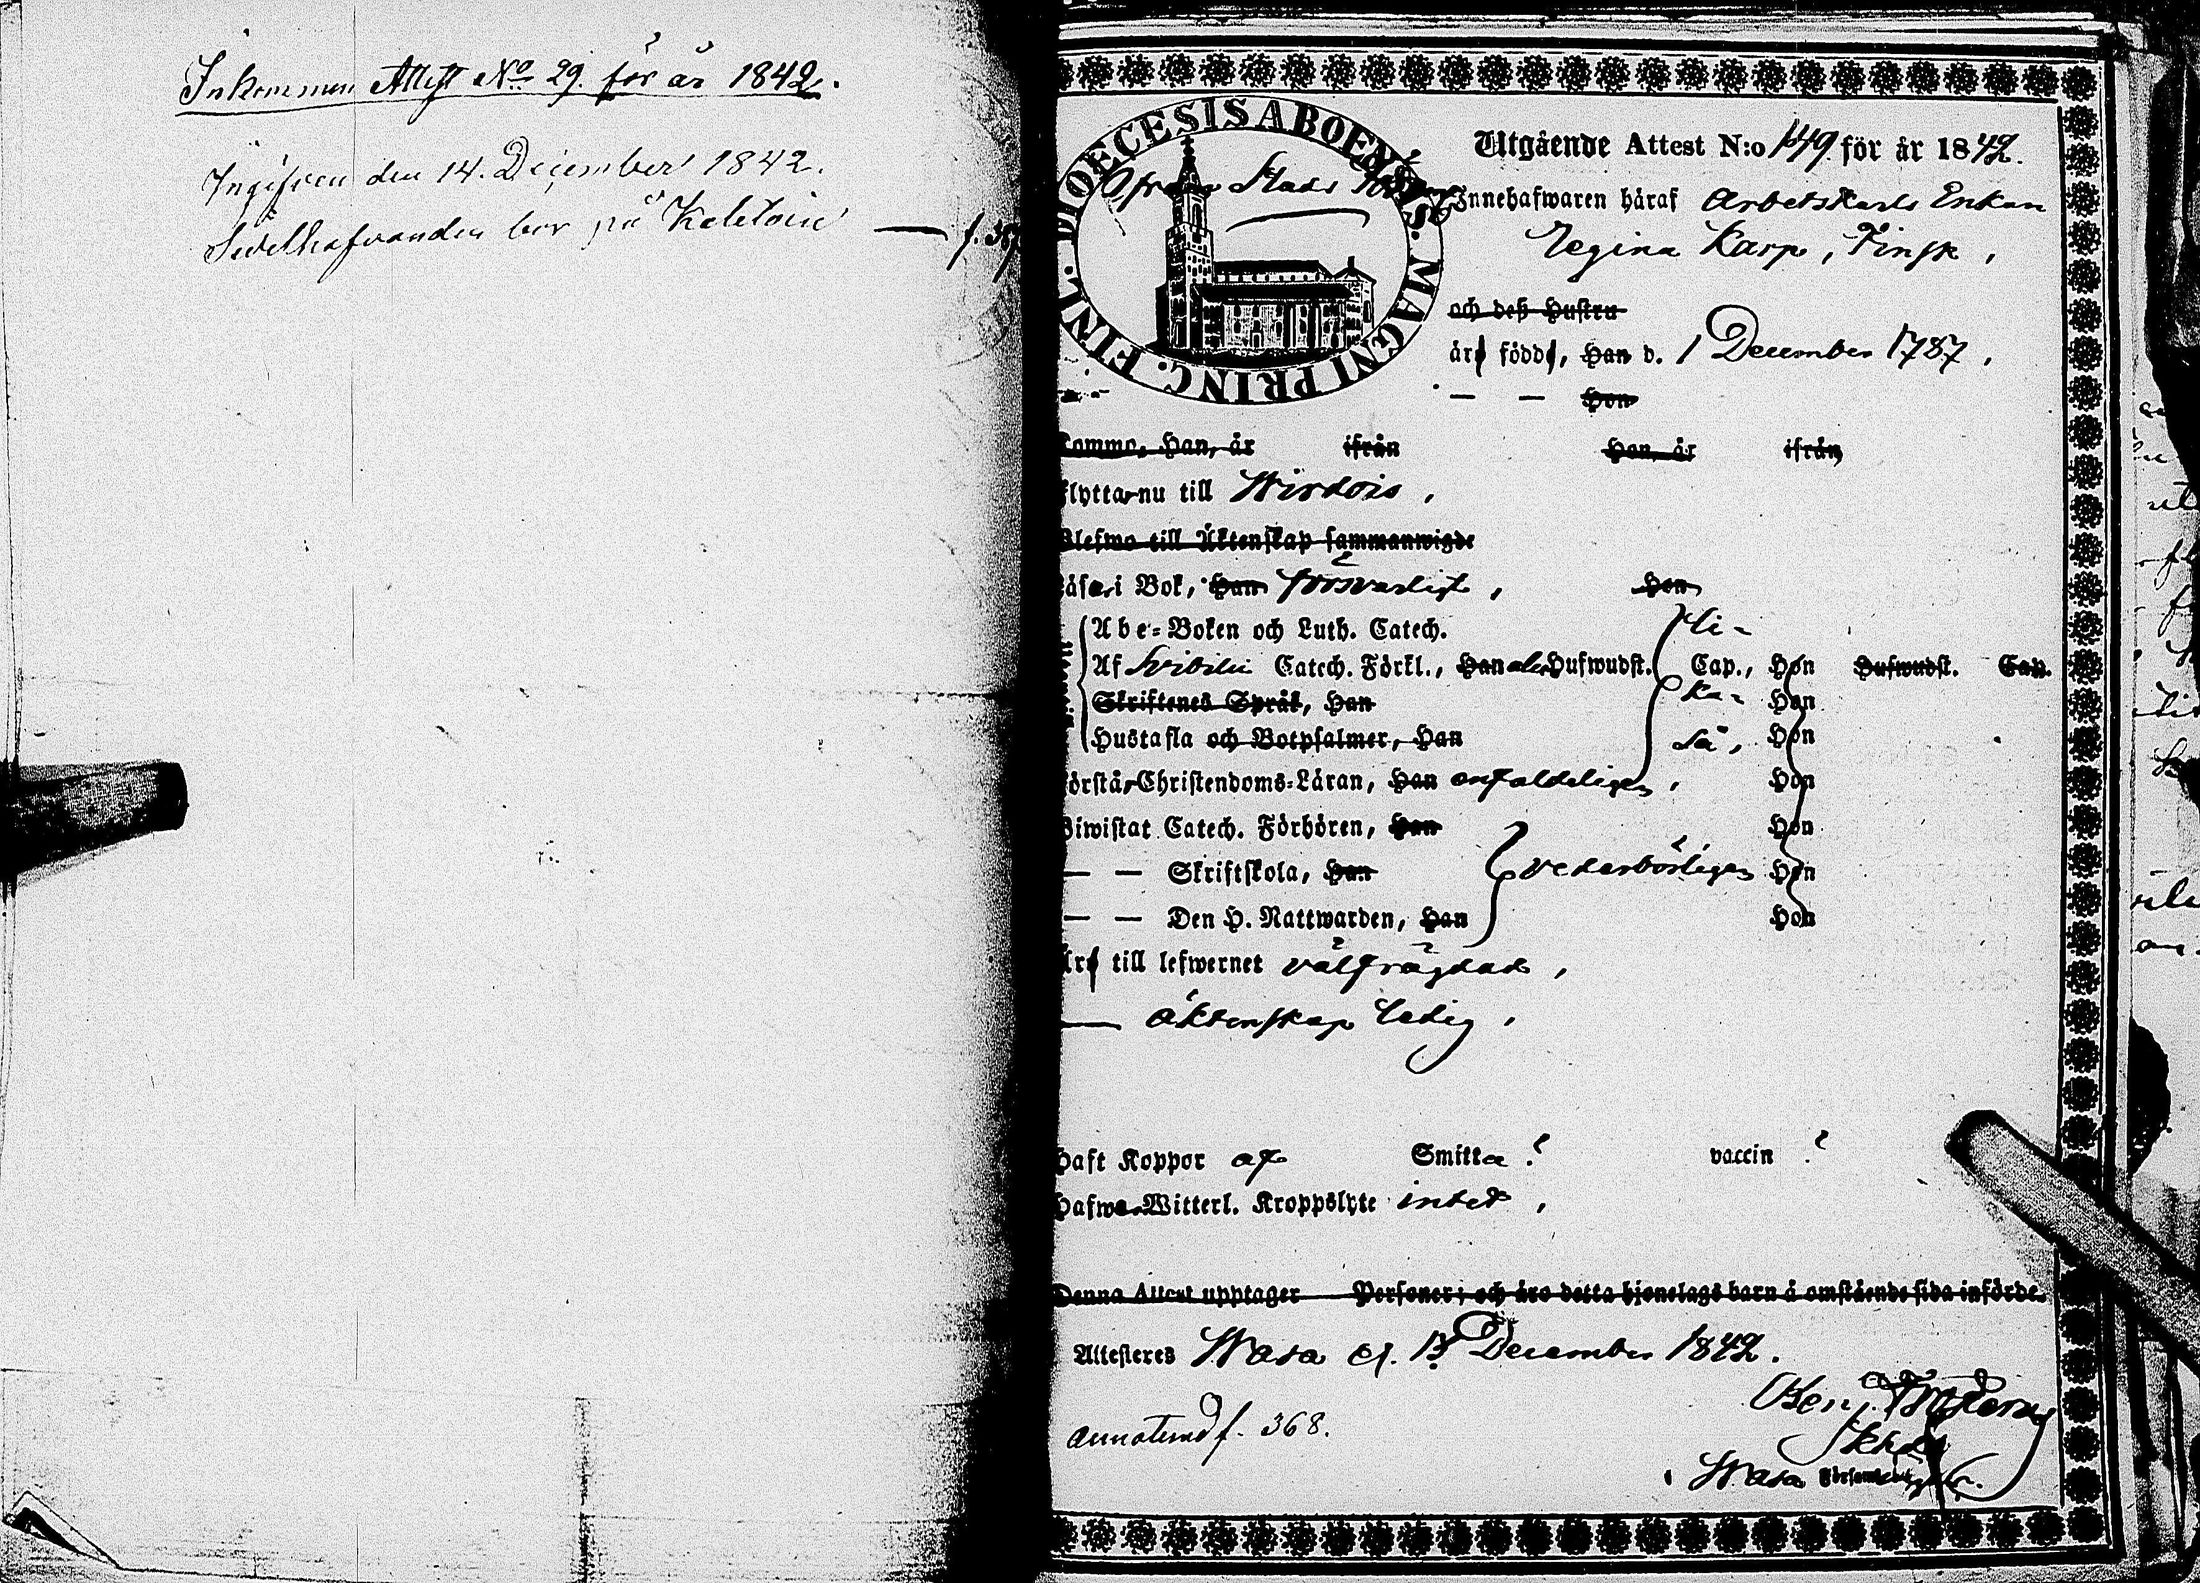 Inkommen Attest No 29. för år 1842.
Ingifven den 14. December 1842.
Sedelhafvanden bor på Keletoin — f. 367
DIOECESIS ABOENSIS. MAGNI PRINC. FINL.
Utgående Attest N:o 149. för år 1842.
Från Stads
Innehafwaren häraf Arbetskarls Enkan
Regina Karp, Finsk,
och deß Hustru
äro födde, Han d. 1 December 1787,
— — Hon
Komme, Han, år ifrån Hon, år ifrån
flytta nu till Wirdois,
Blefwo till Äktenskap sammanwigde
Läsa i Bok, Han försvarligt, Hon
Abe-Boken och Luth. Catech. li-
Af Svibilii Catech. Förkl., Han alla Hufwudst. Cap., Hon Hufwudst. Cap.
Skriftenes Språk, Han ka- Hon
Hustafla och Botpsalmer, Han så, Hon
förstår Christendoms-Läran, Han enfaldeligen, Hon
Biwistat Catech. Förhören, Han Hon
— — Skriftskola, Han vederbörligen Hon
— — Den H. Nattwarden, Han Hon
Äro till lefwernet välfrägdad,
— äktenskap ledig,
Haft Koppor af Smitta? vaccin?
Hafwa Witterl. Kroppslyte intet,
Denna Attest upptager — Personer; och äro detta hjonelags barn å omstående sida införde.
Attesteres Wasa d. 13 December 1842.
Benj.
annoterad f. 368.
Wasa Församling